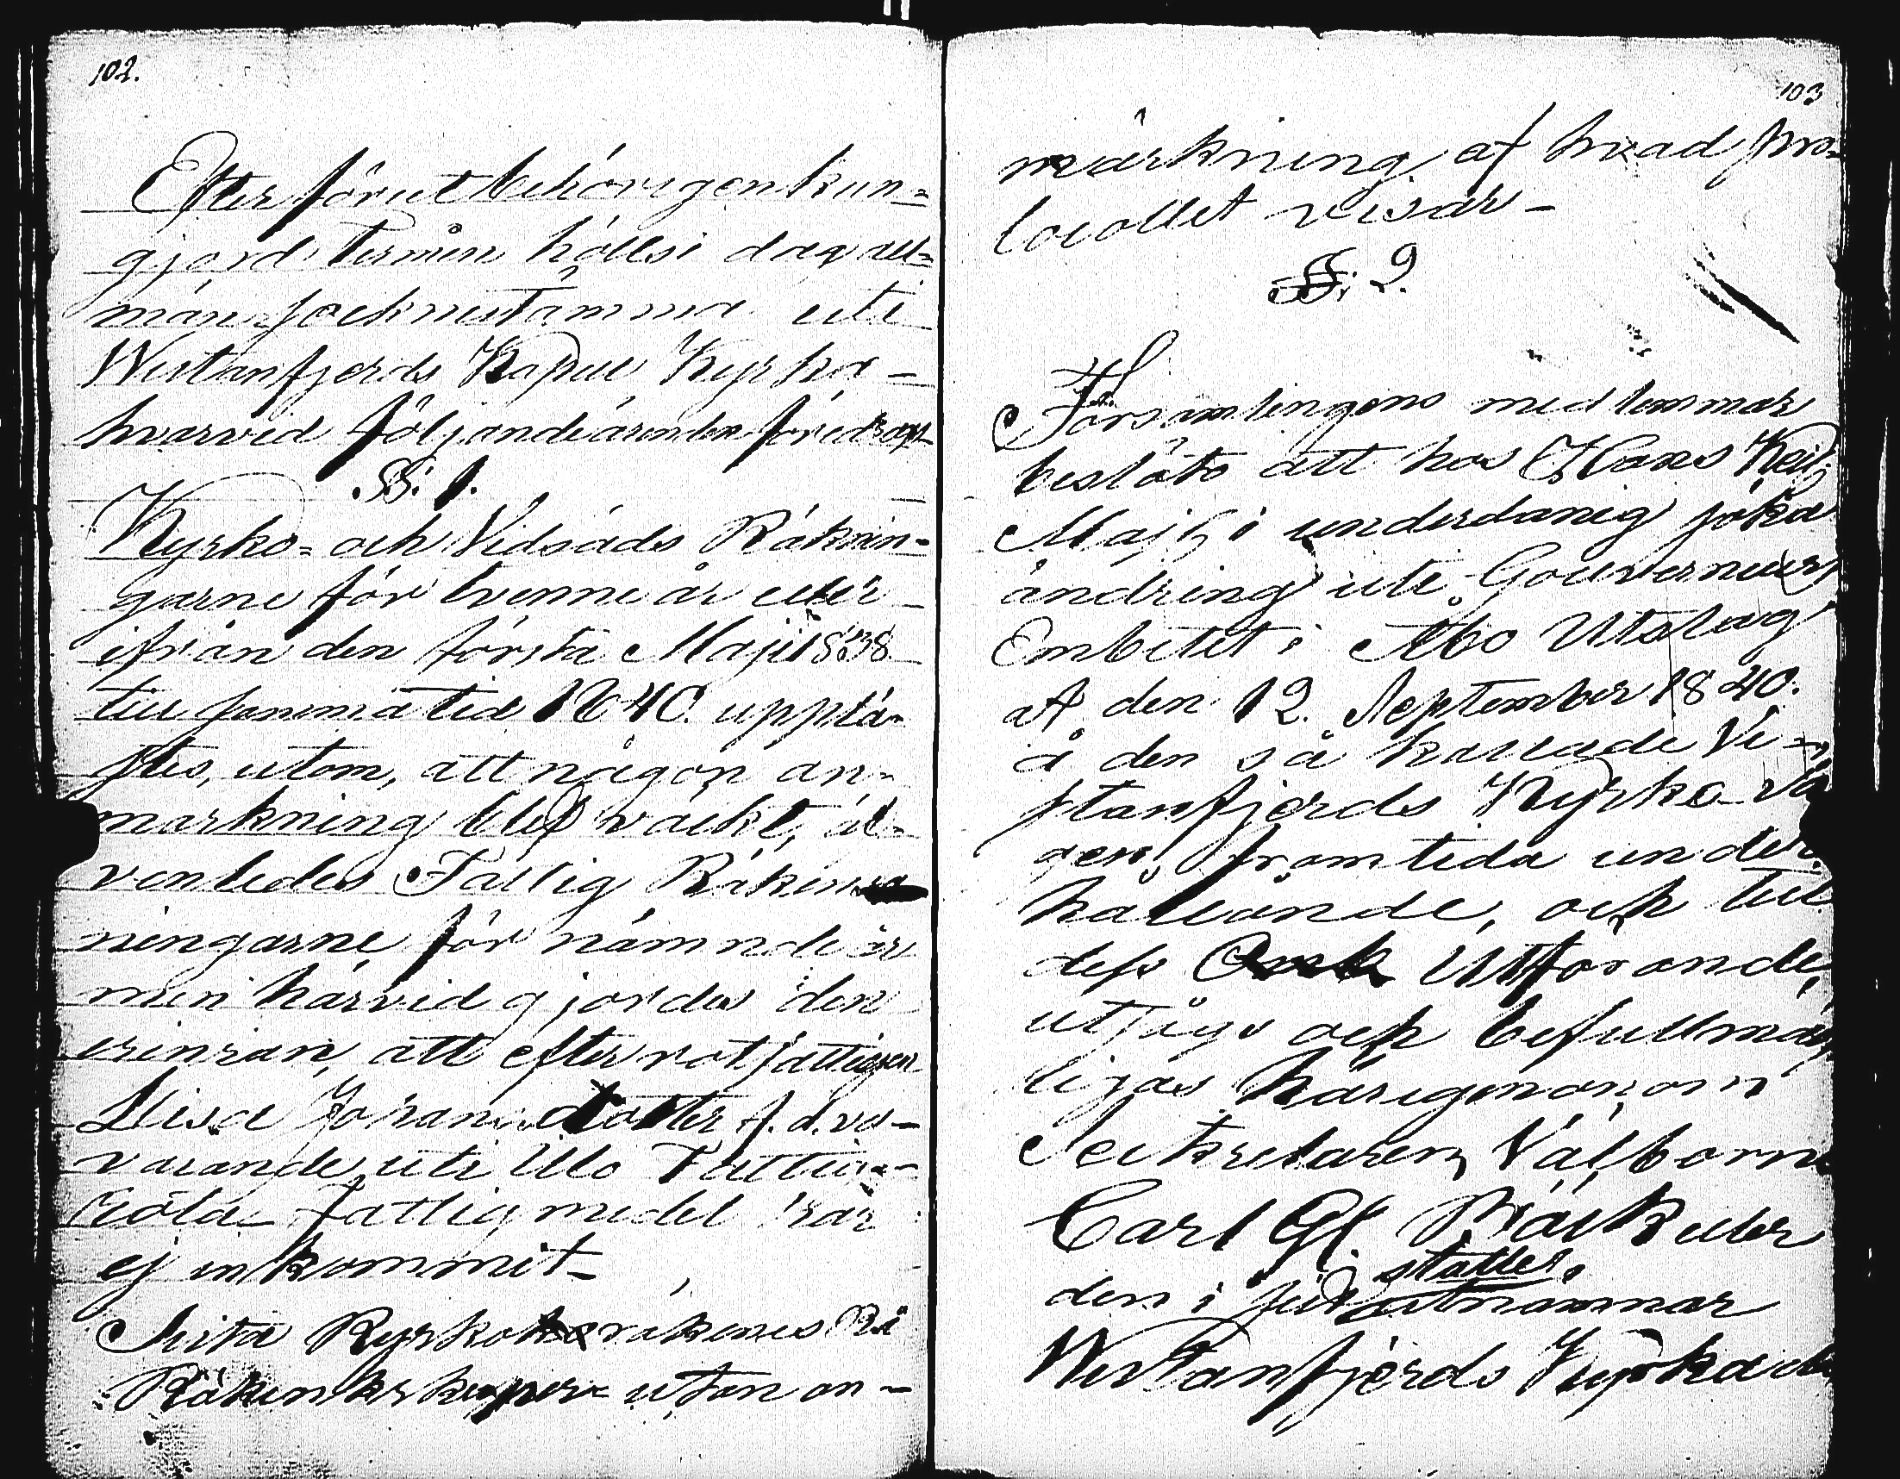 102.
Efter förut behörigen kun=
gjord Termin hölls i dag all=
män socknestämma uti
Westanfjerds Kapell Kyrka –
hvarvid följande ärenden föredrogs
§§: 1.
Kyrko= och Vidsåds Räknin=
garne för tvenne år eller
ifrån den första Maji 1838
till samma tid 1840. upplä=
stes, utom, att någon an=
märkning blef väckt, äl=
venledes Fattig
ningarne för nämnde år
men härvid gjordes den
erinran, att efter rotfattigen
Lisa Johansdotter f. d. va–
varande uti Illo
fattigmedel
ej inkommit –
Sista Kyrko räkenes
utan an–
103
märkning af hvad pro=
tocollet visar –
§§: 2.
Församlingens medlemmar
beslöto att hos Hans Keij:
Majt i underdånig söka
ändring uti Gouverneurs
Embetet i Åbo Utslag
af den 12. September 1840.
å den så kallade Ve–
stanfjerds Kyrko vä
gens framtida under
hållande, och till
dess Utförande,
utsågs och befullmäk
tigas härigenom
Secreteraren Välborne
Carl Gl. eller
den i
ställe.
Westanfjerds Kyrka